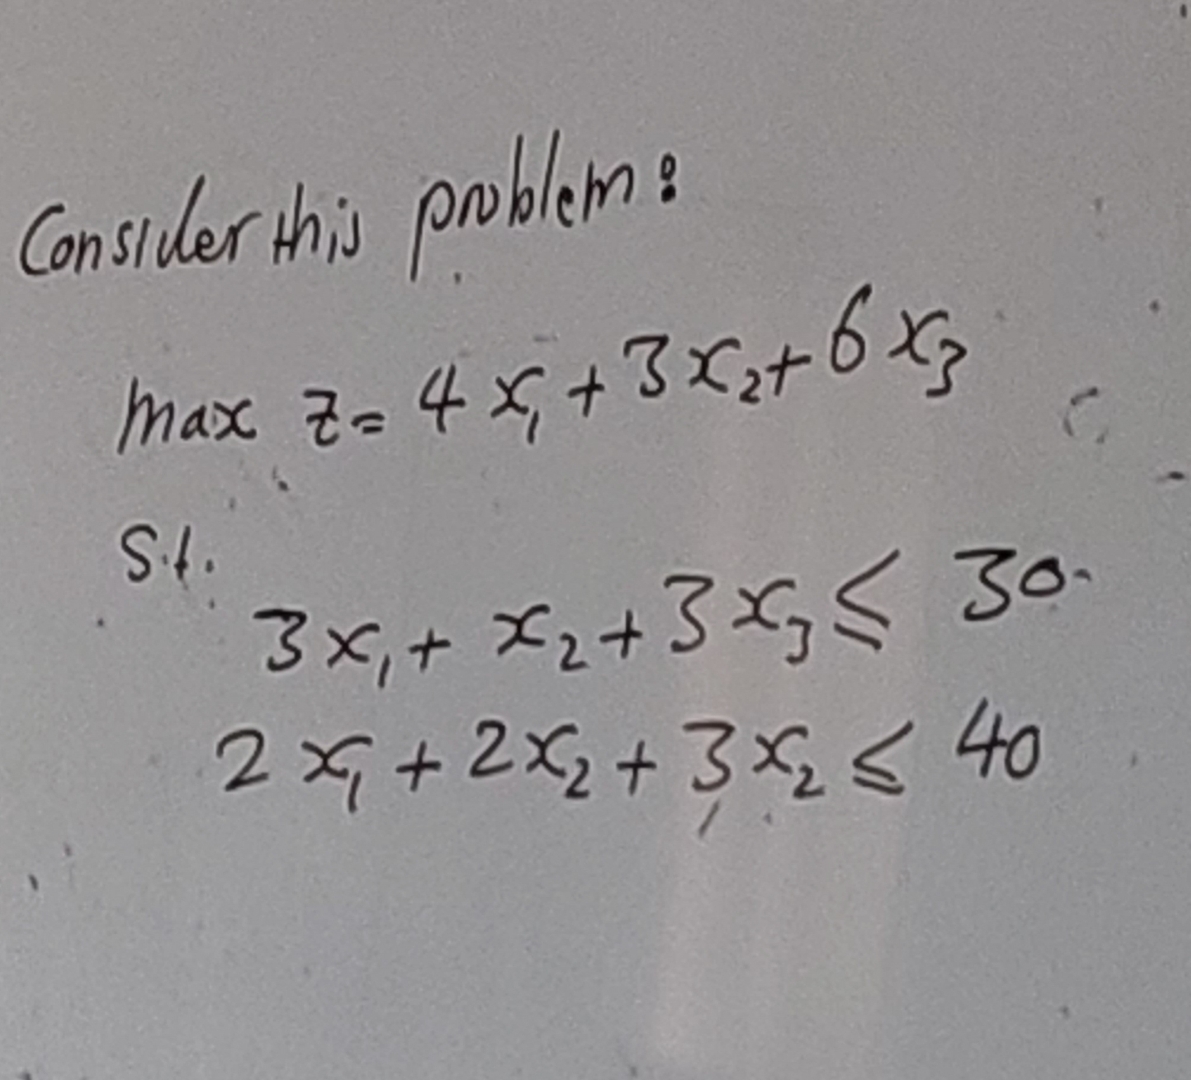 Consider this problem:
max z = 4x₁ + 3x₂ + 6x₃
s.t.
3x₁ + x₂ + 3x₃ ≤ 30
2x₁ + 2x₂ + 3x₂ ≤ 40